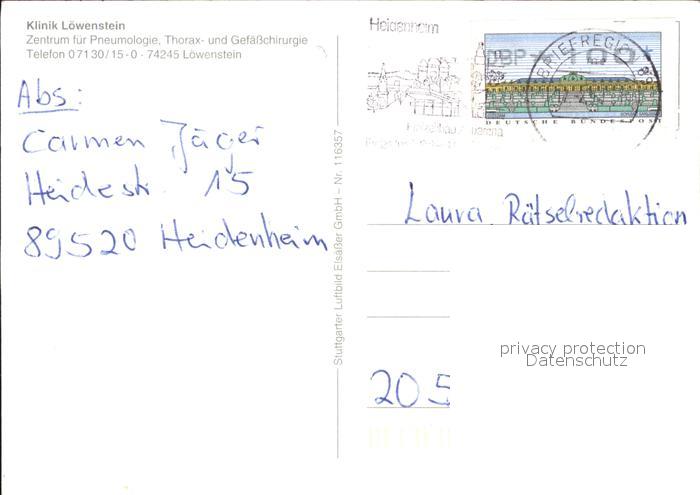 Klinik Löwenstein
Zentrum für Pneumologie, Thorax- und Gefäßchirurgie
Telefon 0 71 30 / 15 - 0 - 74245 Löwenstein
Abs:
Carmen Jäger
Heidestr. 15
89520 Heidenheim
Stuttgarter Luftbild Elsäßer GmbH – Nr. 116357
Heidenheim
DBP
100
BRIEFREGION 89
DEUTSCHE BUNDESPOST
Laura Rätselredaktion
privacy protection
Datenschutz
205